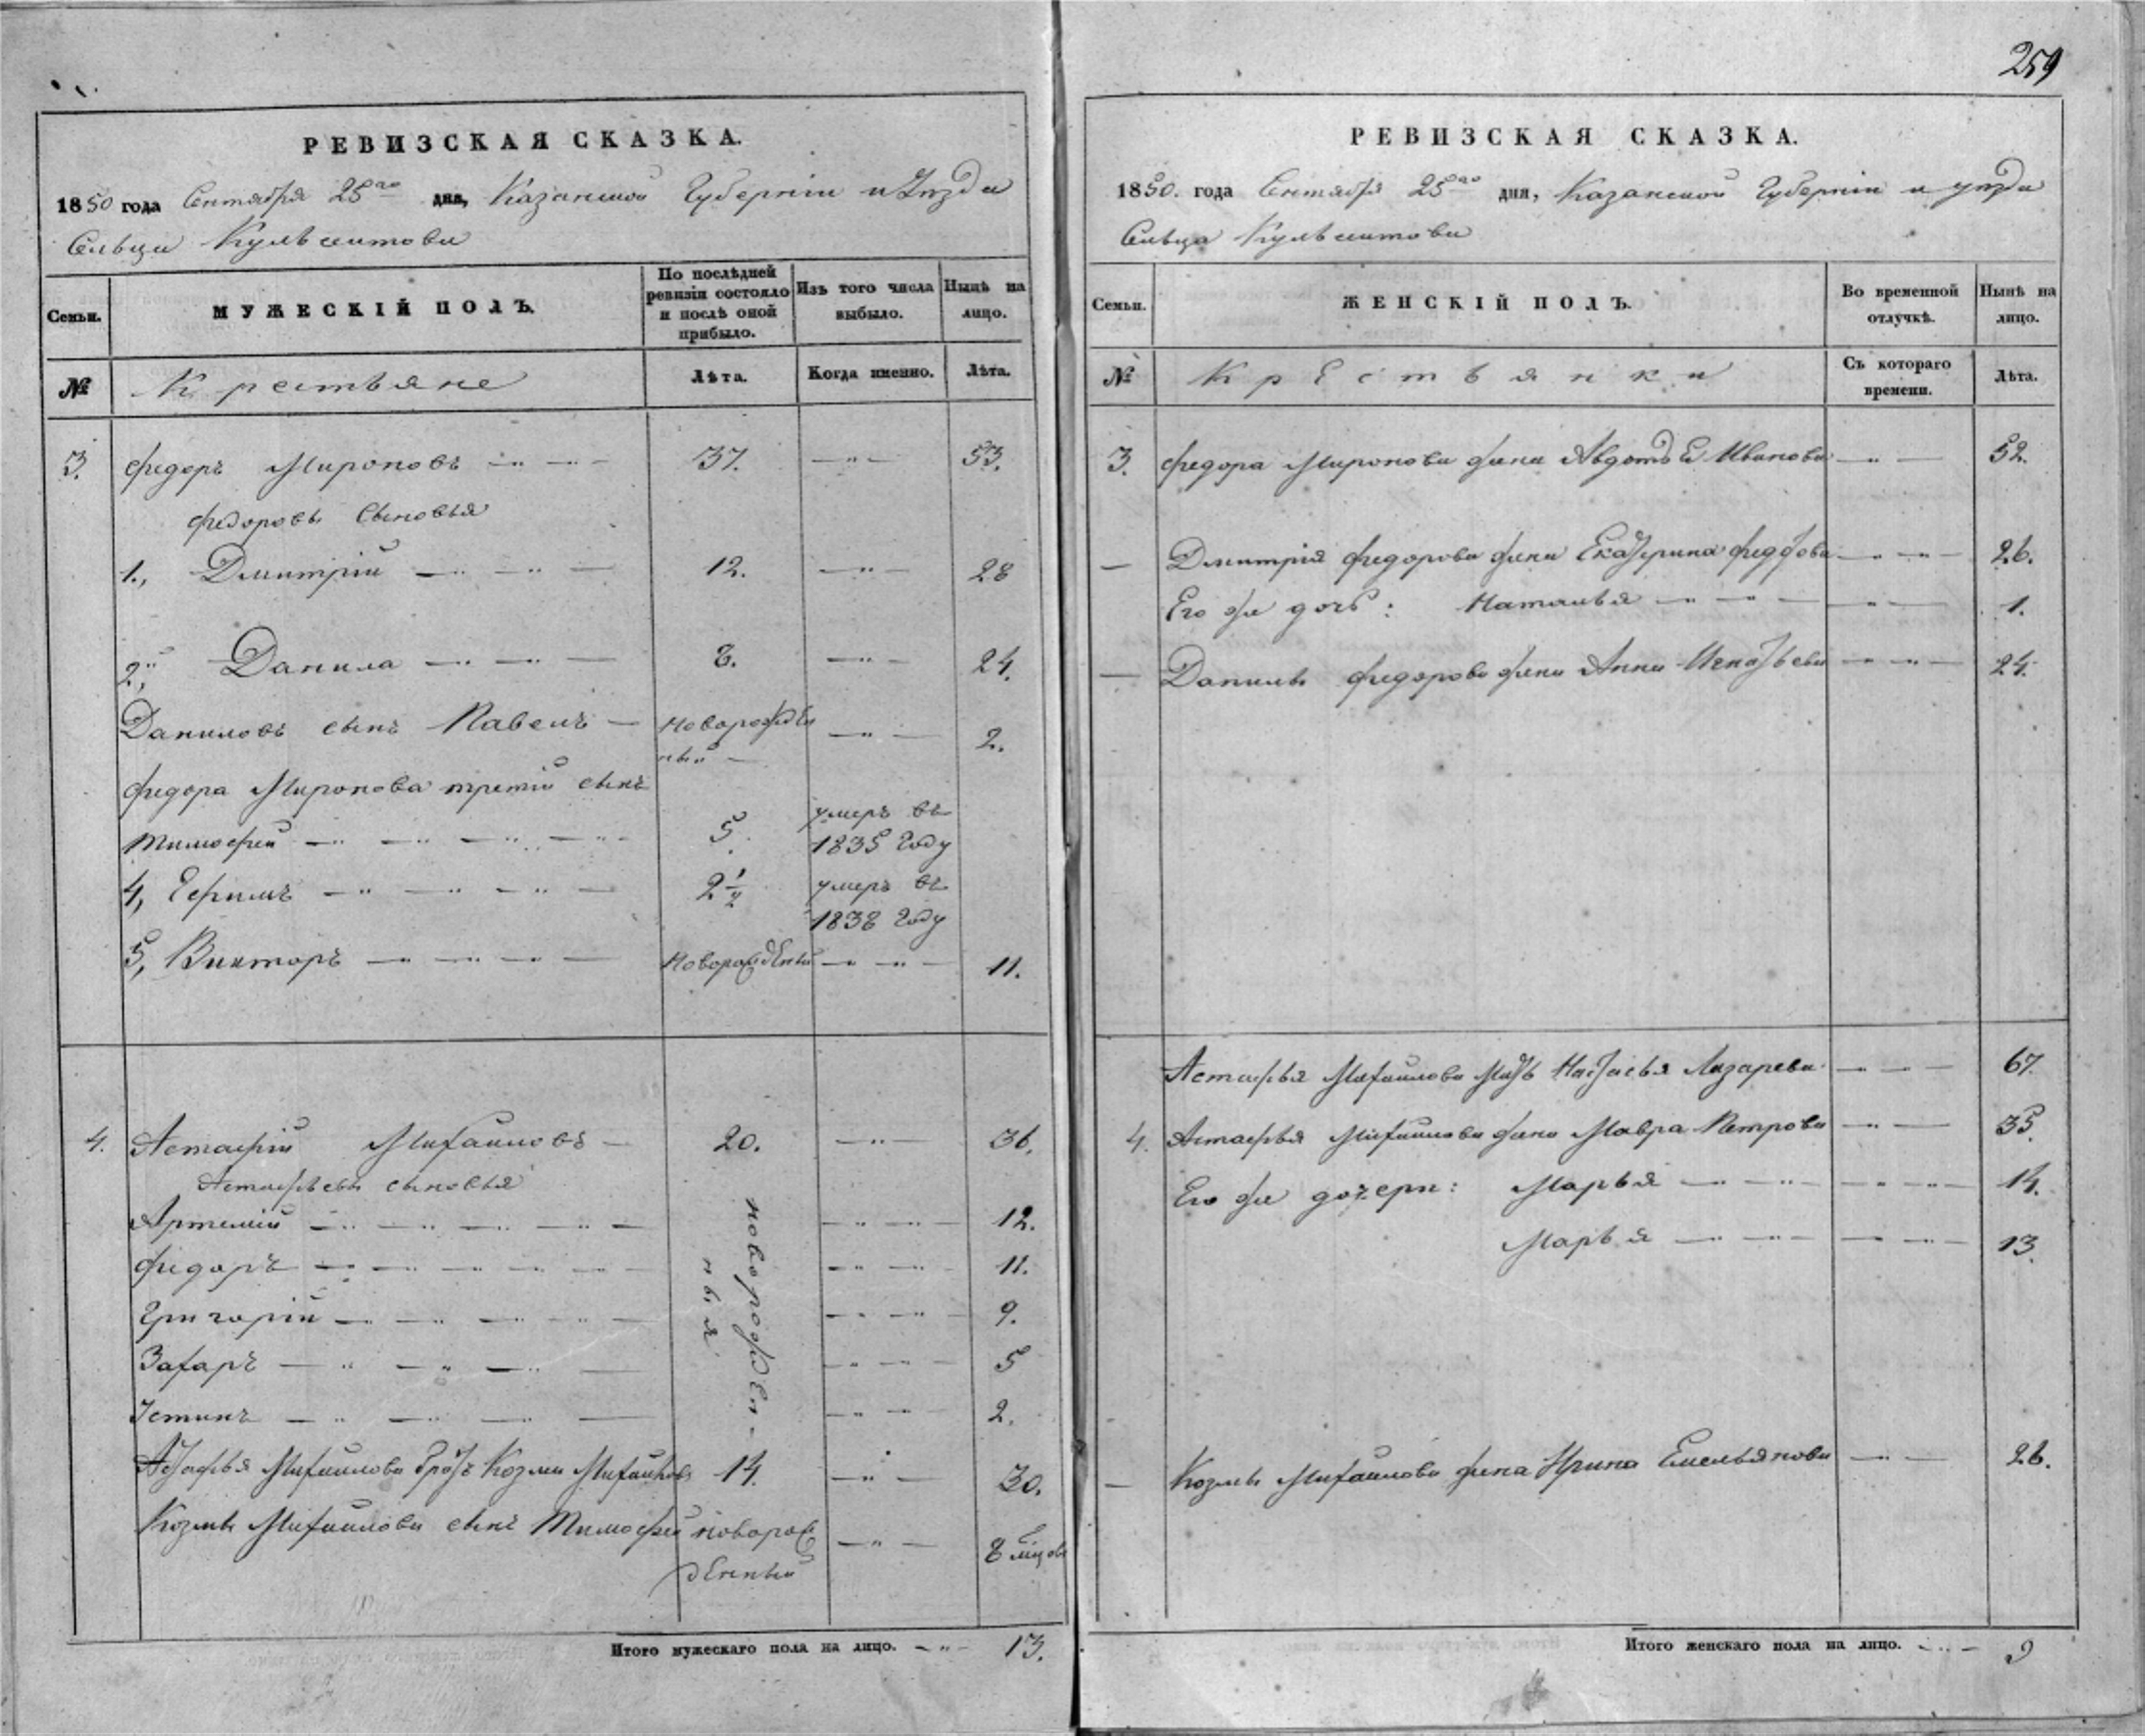 259
РЕВИЗСКАЯ СКАЗКА.
1850 года Сентября 25го дня, Казанской Губернiи и Уѣзда
Сельца Кульсеитова
Семьи. МУЖЕСКIЙ ПОЛЪ. По послѣдней ревизiи состояло и послѣ оной прибыло. Изъ того числа выбыло. Нынѣ на лицо.
№ Крестьяне Лѣта. Когда именно. Лѣта.
3. Федоръ Мироновъ 37. 53.
Федоровы Сыновья
1., Дмитрiй 12. 28
2., Данила 8. 24.
Даниловъ сынъ Павелъ новорожденный 2.
Федора Миронова третiй сынъ
Тимофей 5. умеръ въ 1835 Году
4, Ефимъ 2 1/2 умеръ въ 1838 Году
5, Викторъ Новорожденный 11.
4. Астафiй Михайловъ 20. 36.
Астафьевы сыновья
Артемiй 12.
Федоръ 11.
Григорiй 9.
Захаръ 5
Устинъ 2.
новорожденныя
Астафья Михайлова братъ Козма Михайловъ 14. 30.
Козмы Михайлова сынъ Тимофей новорожденный 8 мцовъ
Итого мужескаго пола на лицо. 13.
РЕВИЗСКАЯ СКАЗКА.
1850. года Сентября 25го дня, Казанской Губернiи и уѣзда
Сельца Кульсеитова
Семьи. ЖЕНСКIЙ ПОЛЪ. Во временной отлучкѣ. Нынѣ на лицо.
№ Крестьянки Съ котораго времени. Лѣта.
3. Федора Миронова жена Авдотья Иванова 52.
Дмитрiя Федорова жена Екатерина Федорова 26.
Его же дочь: Наталья 1.
Данилы Федорова жена Анна Игнатьева 24.
Астафья Михайлова мать Настасья Лазарева 67.
4. Астафья Михайлова жена Мавра Петрова 35.
Его же дочери: Марья 14.
Марья 13.
Козмы Михайлова жена Ирина Емельянова 26.
Итого женскаго пола на лицо. 9